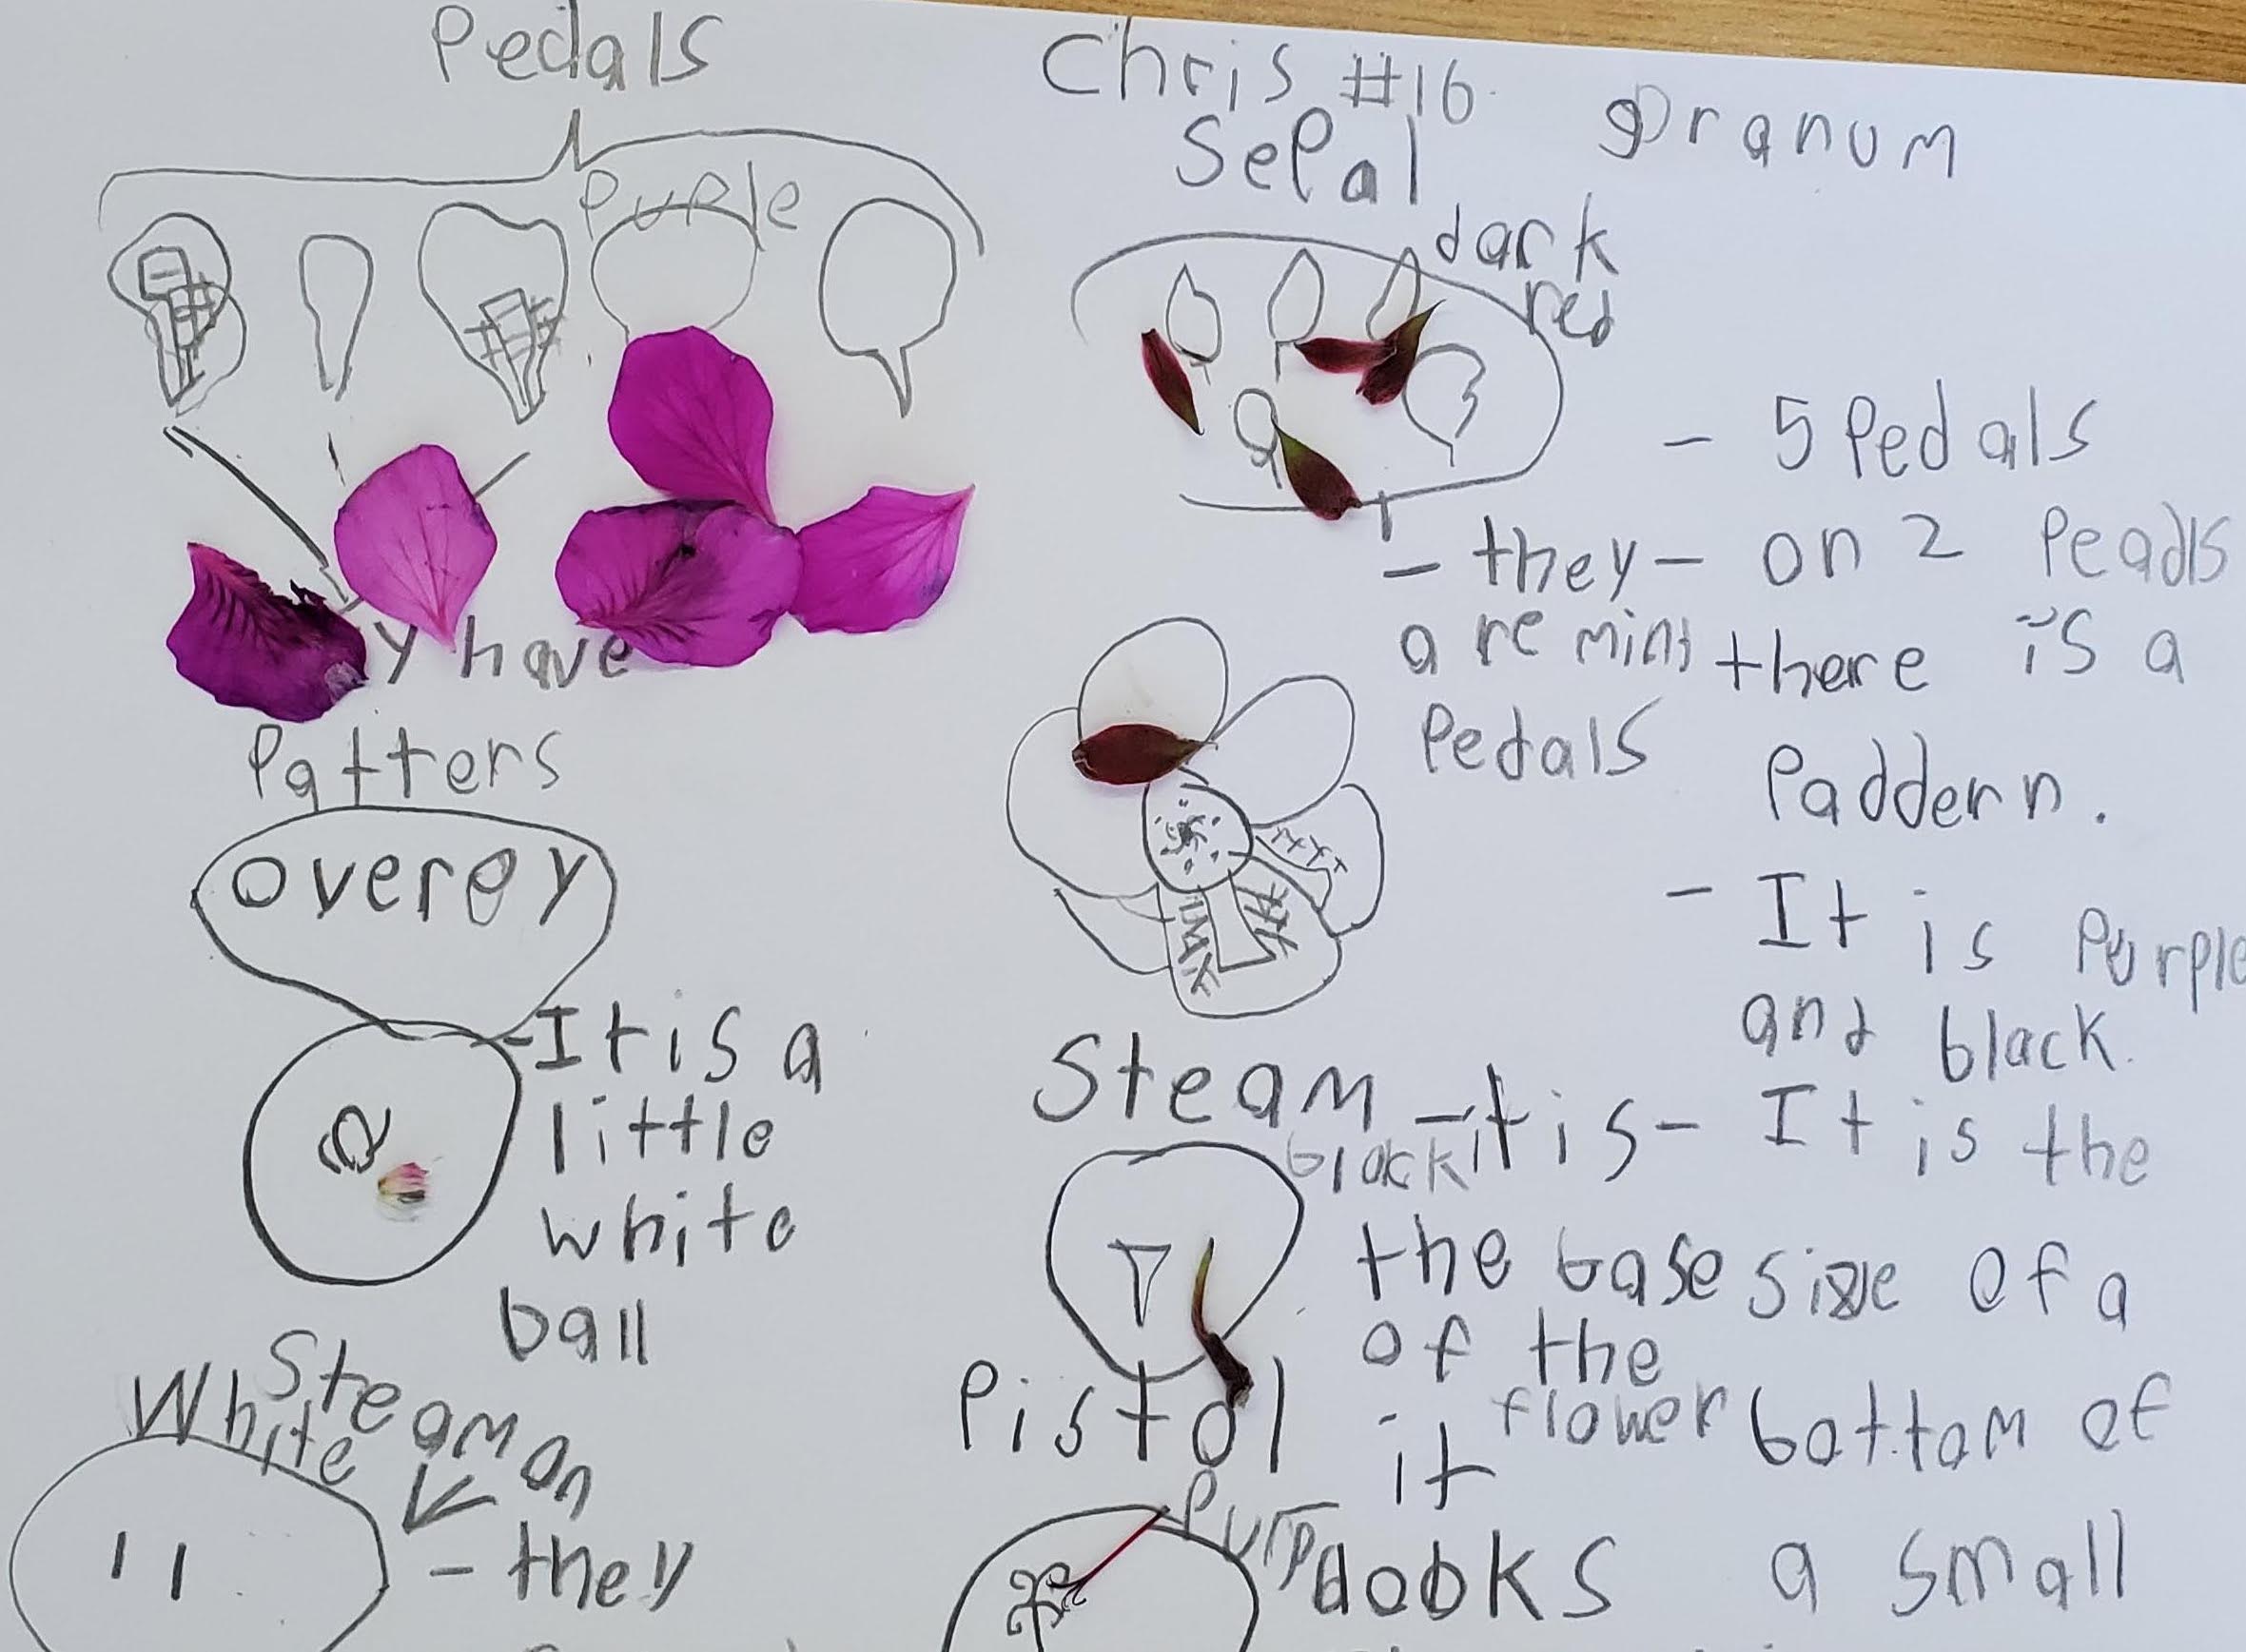 Pedals
Purple
y have
Patters
overey
-It is a
little
white
ball
Steam on
White
- they
Chris #16
Sepal
dark
red
- they
are mini
Pedals
Steam
- it is
black
the base
of the
flower
Pistol
it
Purp
looks
Granum
- 5 Pedals
- on 2 Peadls
there is a
Paddern.
- It is Purple
and black.
- It is the
size of a
bottom of
a small